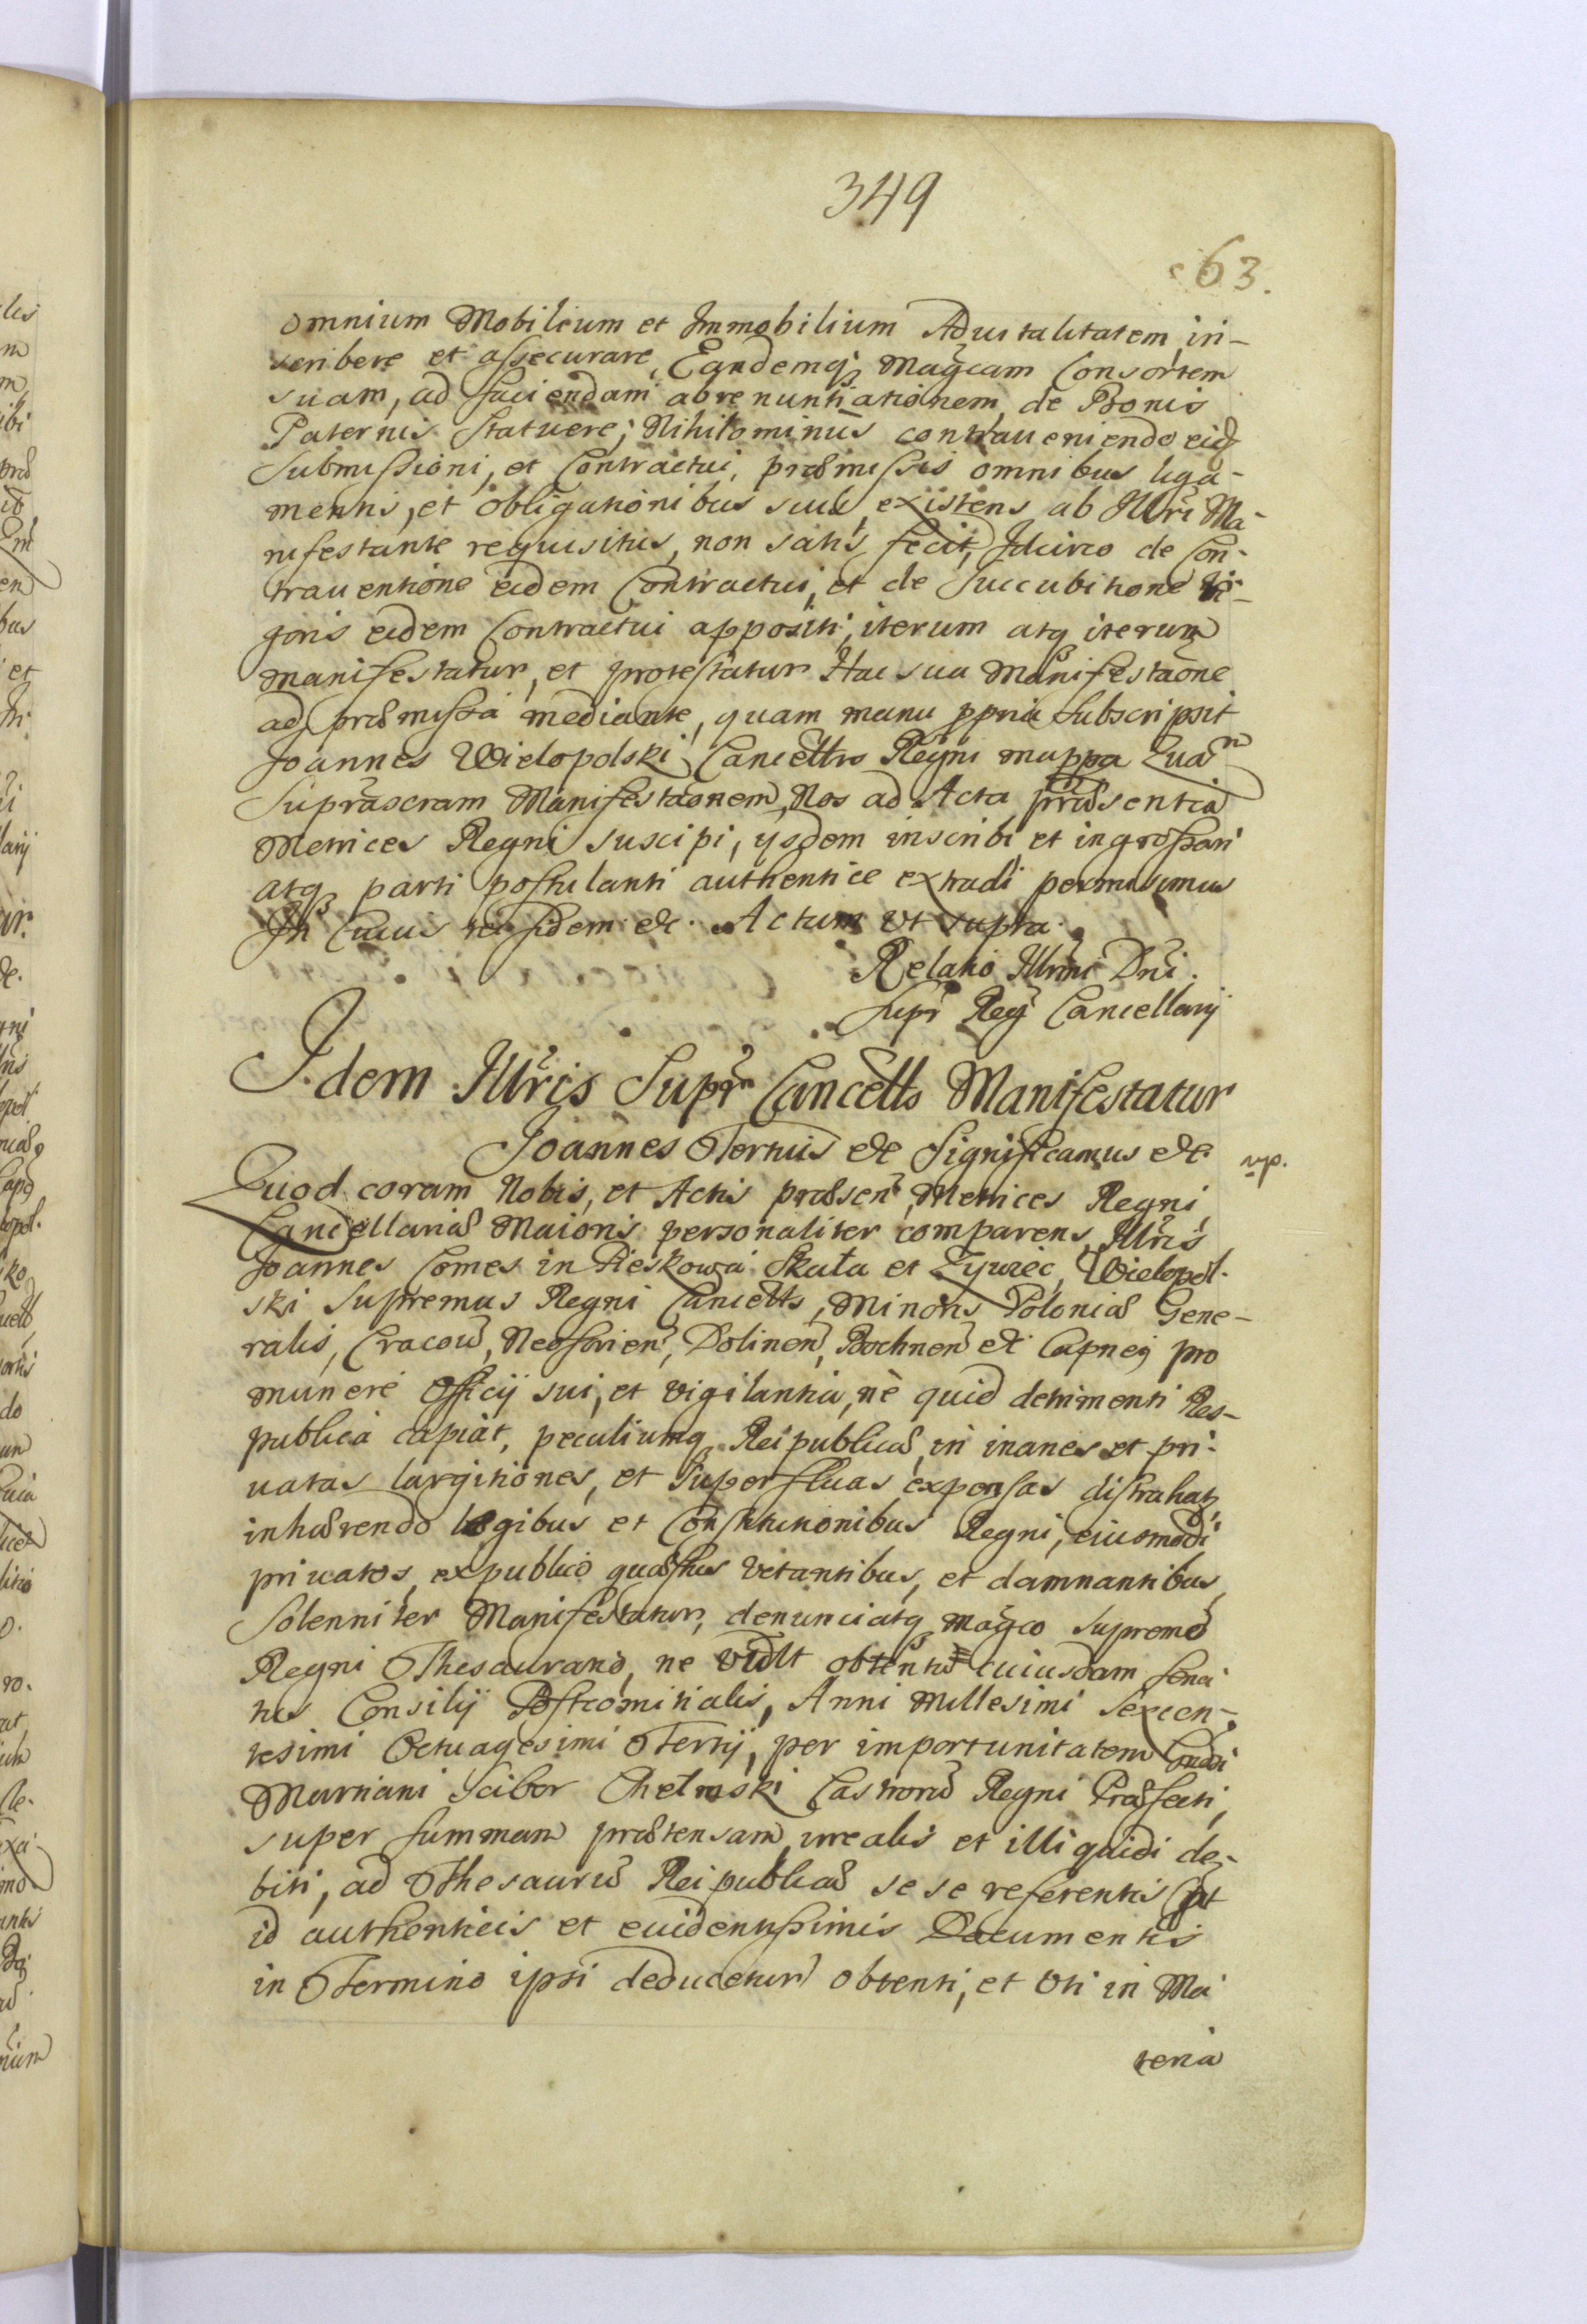 349
63.
omnium Mobilium et Immobilium Aduitalitatem in-
scribere et assecurare, Eandemq; Magcam Consortem
suam, ad faciendam abrenuntiationem de Bonis
Paternis Statuere; Nihilominus contraueniendo eid
Submissioni, et Contractui, præmissis omnibus liga-
mentis, et obligationibus suis existens ab Illri Ma-
nifestante requisitus, non satis fecit, Idcirco de Con-
trauentione eidem Contractui, et de Succubitione Vi-
goris eidem Contractui appositi, iterum atq iterum
manifestatur, et protestatur Hac sua Manifestaone
ad præmissa mediante, quam manu ppria Subscripsit
Joannes Wielopolski Cancellrs Regni mappa Quam
Suprascram Manifestaonem, Nos ad Acta præsentia
Metrices Regni suscipi, ysdem inscribi et ingrossari
atq parti postulanti authentice extradi permisimus
In Cuius rei fidem etc. Actum vt supra.
Relatio Illrmi Dni.
Supr Reg Cancellarij
Idem Illris Suprm Cancells Manifestatur
Joannes Tertius etc Significamus etc
mp.
Quod coram Nobis, et Actis præsen Metrices Regni
Cancellariæ Maioris personaliter comparens Illris
Joannes Comes in Pieskowa Skała et Zywiec Wielopol-
ski Supremus Regni Cancells, Minoris Poloniæ Gene-
ralis, Cracou, Neoforien, Dolinen, Bochnen etc Capneg pro
munere Officij sui, et vigilantia, nè quid detrimenti Res-
publica capiat, peculiumq Reipublicæ, in inanes et pri-
uatas largitiones, et superfluas expensas distrahatz
inhærendo legibus et Constitutionibus Regni, eiusmodi
priuatos, ex publico quæstus vetantibus, et damnantibus
Solenniter Manifestatur, denunciatq magco Supremo
Regni Thesaurario, ne Vult obtentu cuiusdam Sena
tus Consilij Postcomitialis, Anni Millesimi Sexcen-
tesimi Octuagesimi Tertij, per importunitatem Gnosi
Martiani Scibor Chełmski Castrorũ Regni Præfecti,
super Summam prætensam irrealis et illiquidi de-
biti, ad Thesaurũ Reipublicæ sese referentis (ut
id authenticis et euidentissimis Documentis
in Termino ipsi deducetur) obtenti, et Vti in Ma
teria